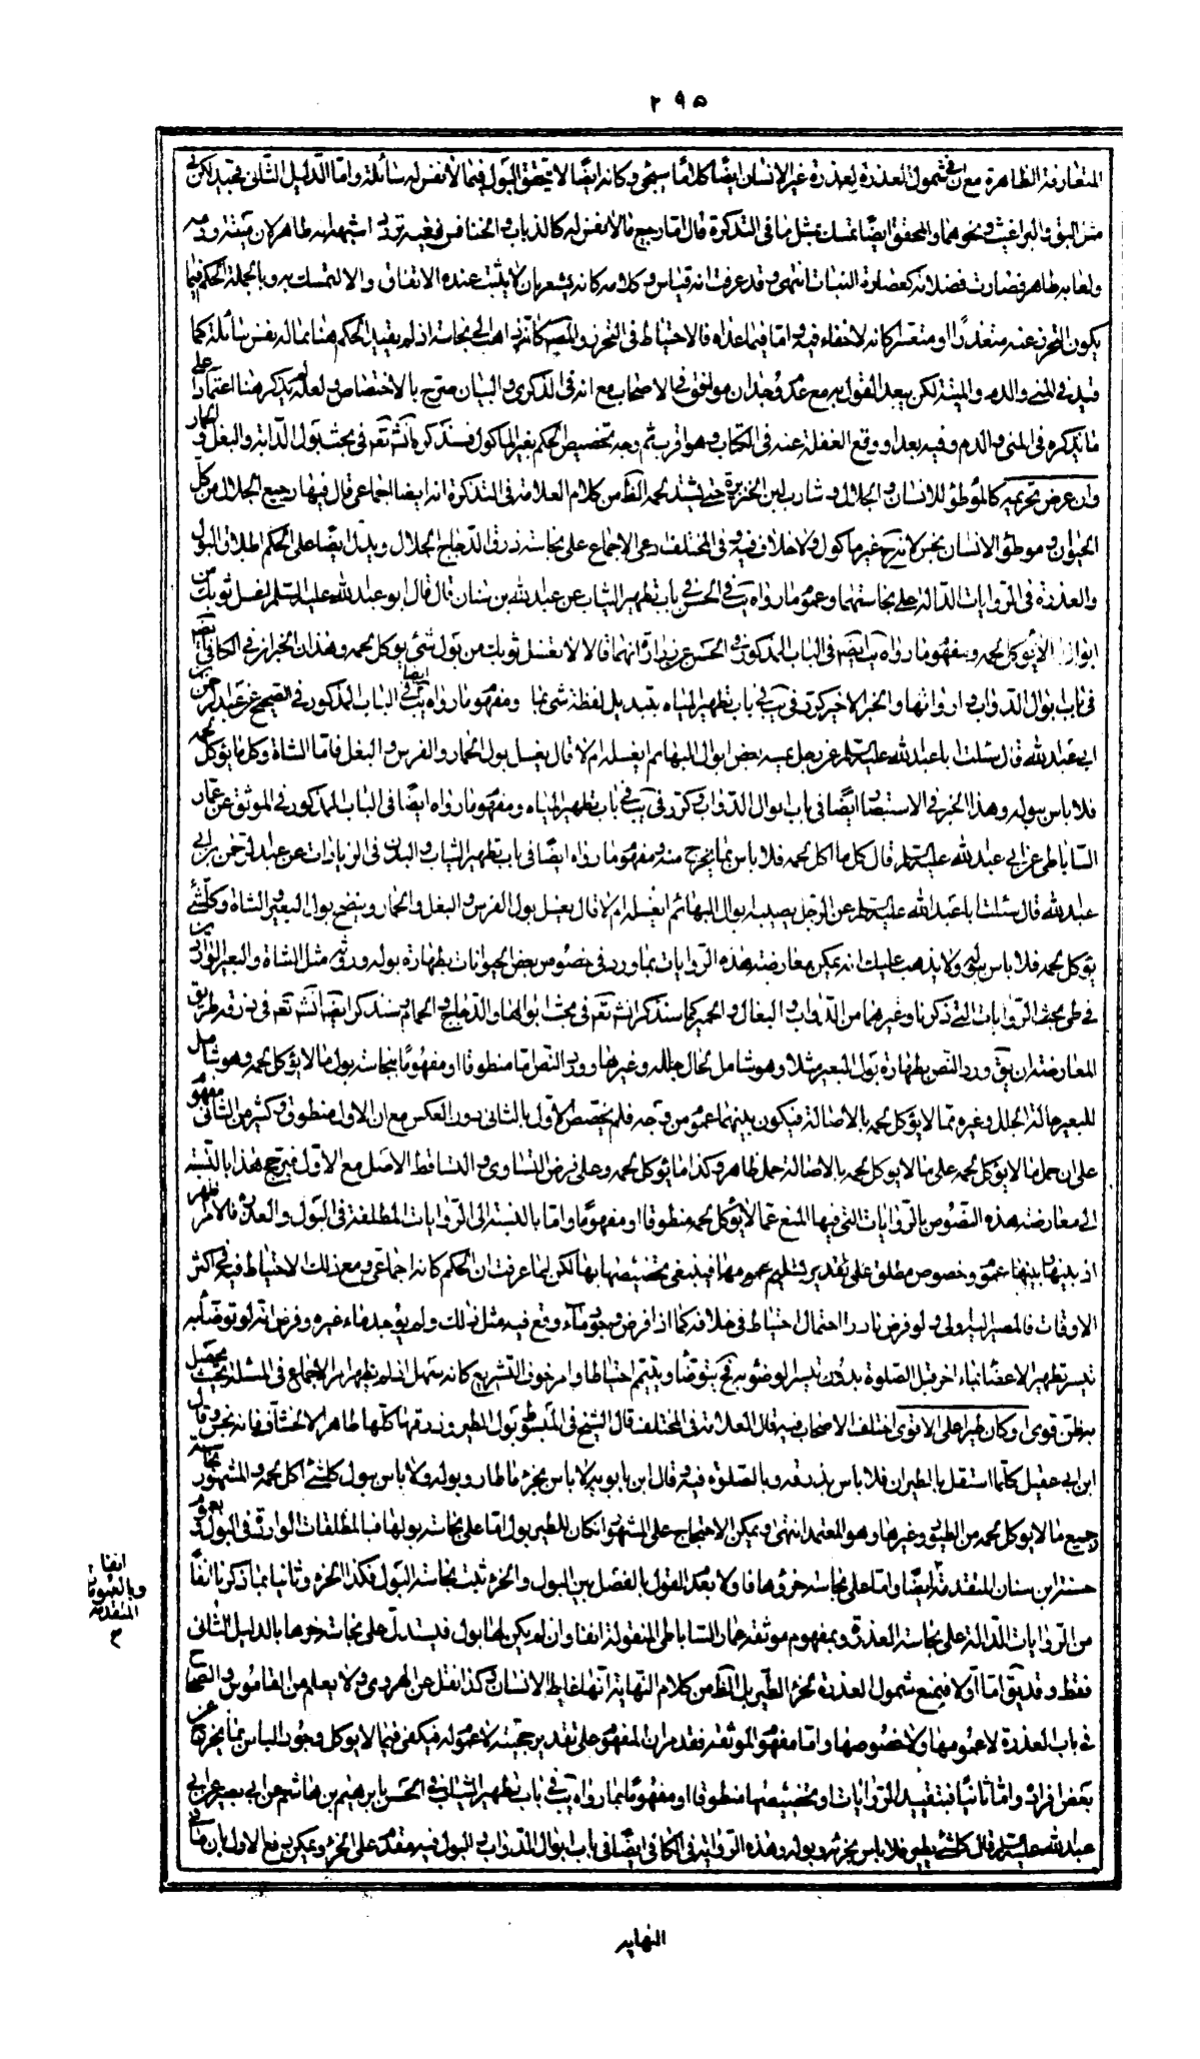 ٢٩۵
المتعارفة الظاهرة مع ان فى شمول العذرة لعذرة غير الانسان ايضا كلاما سيجئ وكانه ايضا لا يتحقق البول فيما لا نفس له سائلة واما الدليل الثانى فجيد لكن فى
مثل البق والبراغيث ونحوهما والمحقق ايضا تمسك بمثل ما فى التذكرة قال اما رجيع ما لا نفس له كالذباب والخنافس ففيه تردد اشبهه انه طاهر لان ميتته ودمه
ولعابه طاهر فصارت فضلاته كعصارة النبات انتهى وقد عرفت انه قياس وكلامه كانه يشعر بان لا يثبت عنده الاتفاق والا لتمسك به وبالجملة الحكم فيما
يكون التحرز عنه متعذرا او متعسرا كانه لا خفاء فيه واما فيما عداه فالاحتياط فى التحرز والمصنف كانه ذاهب الى نجاسته اذ لم يقيد الحكم هنا بماله نفس سائلة كما
قيد فى المنى والدم والميتة لكن يبعد القول به مع عدم وجدان موافق فى الاصحاب مع انه فى الذكرى والبيان صرح بالاختصاص ولعله لم يذكر هنا اعتمادا على
ما يذكره فى المنى والدم وفيه بعد او وقع الغفلة عنه فى الكتاب وهو اقرب ثم وجه تخصيص الحكم بغير المأكول فسنذكره انشا تعه فى بحث بول الدابة والبغل والحمار
وان عرض تحريمه كالموطؤ للانسان والجلال وشارب لبن الخنزيرة حتى يشتد لحمه الظ من كلام العلامة فى التذكرة انه ايضا اجماعى قال فيها رجيع الجلال من كل
الحيوان وموطؤ الانسان نجس لانه ح غير مأكول ولا خلاف فيه وفى المختلف دعى الاجماع على نجاسة ذرق الدجاج الجلال ويدل ايضا على الحكم اطلاق البول
والعذرة فى الروايات الدالة على نجاستهما وعموم ما رواه يب فى الحسن فى باب تطهير الثياب عن عبد الله بن سنان قال قال ابو عبد الله عليه السلم اغسل ثوبك من
ابوال ما لا يؤكل لحمه وبمفهوم ما رواه يب ايضه فى الباب المذكور فى الحسن عن زرارة انهما قالا لا تغسل ثوبك من بول شئ يوكل لحمه وهذان الخبران فى الكافى ايضه
فى باب ابوال الدواب وارواثها والخبر الاخير كرر فى يب فى باب تطهير المياه بتبديل لفظة شئ بما ومفهوم ما رواه يب ايضا فى الباب المذكور فى الصحيح عن عبد الرحمن بن
ابى عبد الله قال سئلت ابا عبد الله عليه السلم عن رجل يمسه بعض ابوال البهائم ايغسله ام لا قال يغسل بول الحمار والفرس والبغل فاما الشاة وكل ما يؤكل لحمه
فلا باس ببوله وهذا الخبر فى الاستبصار ايضا فى باب ابوال الدواب وكرر فى يب فى باب تطهير المياه ومفهوم ما رواه ايضا فى الباب المذكور فى الموثق عن عمار
الساباطى عن ابى عبد الله عليه السلم قال كل ما اكل لحمه فلا باس بما يخرج منه ومفهوم ما رواه ايضا فى باب تطهير الثياب والبدن فى الزيادات عن عبد الرحمن بن ابى
عبد الله قال سئلت ابا عبد الله عليه السلم عن الرجل يصيبه ابوال البهائم ايغسله ام لا قال يغسل بول الفرس والبغل والحمار وينضح بول البعير والشاة وكل شئ
يؤكل لحمه فلا باس ببوله ولا يذهب عليك انه يمكن معارضة هذه الروايات بما ورد فى خصوص بعض الحيوانات بطهارة بوله وروثه مثل الشاة والبعير الواردين
فى طى بحث الروايات التى ذكرنا وغيرهما من الدواب والبغال والحمير كما سنذكر انشا تعه فى بحث ابوالها والدجاج والحمام وسنذكر ايضه انشا تعه فى ذرقه طريق
المعارضة ان يق ورد النص بطهارة بول البعير مثلا وهو شامل لحال جلله وغيرها وورد النص اما منطوقا او مفهوما بنجاسة بول ما لا يؤكل لحمه وهو شامل
للبعير حالة الجلل وغيره مما لا يؤكل لحمه بالاصالة فيكون بينهما عموم من وجه فلم يخصص الاول بالثانى دون العكس مع ان الاول منطوق وكثير من الثانى مفهوم
على ان حمل ما لا يؤكل لحمه على ما لا يوكل لحمه بالاصالة حمل ظاهر وكذا ما يؤكل لحمه وعلى فرض التساوى والتساقط الاصل مع الاول فيترجح هذا بالنسبة
الى معارضة هذه النصوص بالروايات التى فيها المنع عما لا يؤكل لحمه منطوقا او مفهوما واما بالنسبة الى الروايات المطلقة فى البول والعذرة فالامر ظهر
اذ بينها وبينها عموم وخصوص مطلق على تقدير تسليم عمومها فينبغى تخصيصها بها لكن لما عرفت ان الحكم كانه اجماعى ومع ذلك الاحتياط فيه فى اكثر
الاوقات فالمصير اليه اولى ولو فرض نادرا احتمال احتياط فى خلافه كما اذا فرض وجود ماء وقع فيه مثل ذلك ولم يوجد ماء غيره وفرض انه لو توضأ به
تيسر تطهير الاعضا بماء اخر قبل الصلوة بدون تيسر الوضوء به فح يتوضأ ويتيمم احتياطا وامر خوف التشريع كانه سهل اذ لم يظهر امر الاجماع فى المسئلة بحيث يحصل
به ظن قوى او كان طيرا على الاقوى اختلف الاصحاب فيه قال العلامة فى المختلف قال الشيخ فى المبسوط بول الطيور وذرقها كلها طاهر الا الخشاف فانه نجس وقال
ابن ابى عقيل كلما استقل بالطيران فلا باس بذرقه وبالصلوة فيه وقال ابن بابويه لا باس بخرء ما طار وبوله ولا باس ببول كل شئ اكل لحمه والمشهور نجاسة
رجيع ما لا يوكل لحمه من الطيور وغيرها وهو المعتمد انتهى ويمكن الاحتجاج على المشهور ان كان للطير بول اما على نجاسة بولها فبالمطلقات الواردة فى البول وبعموم
حسنة ابن سنان المتقدمة ايضا واما على نجاسة خرؤها فاولا بعدم القول بالفصل بين البول والخرء ثبت نجاسة البول فكذا الخرء وثانيا بما ذكرنا انفا
من الروايات الدالة على نجاسة العذرة وبمفهوم موثقة عمار الساباطى المنقولة انفا وان لم يكن لها بول فيستدل على نجاسة خرءها بالدليل الثانى
فقط وقد يق اما اولا فبمنع شمول العذرة لخرء الطير بل الظ من كلام النهاية انها غايط الانسان وكذا نقل عن الهروى ولا يعلم من القاموس والصحاح
فى باب العذرة لا عمومها ولا خصوصها واما مفهوم الموثقة فقد مر ان المفهوم على تقدير حجيته لا عموم له فيكفى فيما لا يوكل وجود الباس بما يخرج عن
بعض افراده واما ثانيا فبتقييد الروايات وتخصيصها منطوقا او مفهوما بما رواه يب فى باب تطهير الثياب فى الحسن بابرهيم بن هاشم عن ابى بصير عن ابى
عبد الله عليه السلم قال كل شئ يطير فلا باس بخرئه وبوله وهذه الرواية فى الكافى ايضا فى باب ابوال الدواب والبول فيه مقدم على الخرء ويمكن دفع الاول بان ما فى
انفا
وبالعمومات
المتقدمة
٣
النهايه